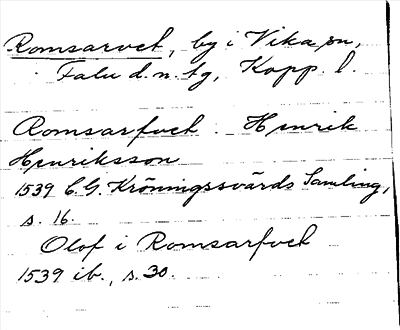 Romsarvet, by i Vika sn,
Falu d.n. tg, Kopp. l.
Romsarfvet. Henrik
Henriksson
1539 C.G. Kröningssvärds Samling,
s. 16.
Olof i Romsarfvet
1539 ib., s. 30.